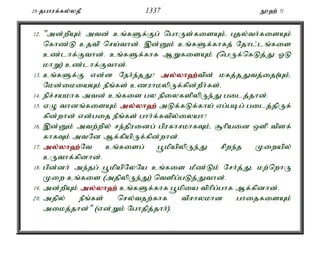 29 தபாரக்கல்லதீ 1337 நூஹ் 71
12. "அன்றியும் அவன் உங்களுக்குப் பொருள்களையும், புதல்வர்களையும்
கொண்டு உதவி செய்வான். இன்னும் உங்களுக்காகத் தோட்டங்களை
உண்டாக்குவான். உங்களுக்காக ஆறுகளையும் (பெருக்கெடுத்து ஓடு
மாறு) உண்டாக்குவான்.
13. உங்களுக்கு என்ன நேர்ந்தது? அல்லாஹ்வின் மகத்துவத்தை(யும்,
மேன்மையையும்) நீங்கள் உணராமலிருக்கின்றீர்கள்.
14. நிச்சயமாக அவன் உங்களை பல நிலைகளிலிருந்து படைத்தான்.
15. ஏழு வானங்களையும் அல்லாஹ் அடுக்கடுக்காய் எப்படிப் படைத்திருக்
கின்றான் என்பதை நீங்கள் பார்க்கவில்லையா?
16. இன்னும் அவற்றில் சந்திரனைப் பிரகாசமாகவும், சூரியனை ஒளி விளக்
காகவும் அவனே ஆக்கியிருக்கின்றான்.
17. அல்லாஹ்வே உங்களைப் பூமியிலிருந்து சிறந்த முறையில்
உருவாக்கினான்.
18. பின்னர் அந்தப் பூமியிலேயே உங்களை மீண்டும் சேர்த்து, மற்றொரு
முறை உங்களை (அதிலிருந்து) வெளிப்படுத்துவான்.
19. அன்றியும் அல்லாஹ் உங்களுக்காக பூமியை விரிப்பாக ஆக்கினான்.
20. அதில் நீங்கள் செல்வதற்காக விசாலமான பாதைகளையும்
அமைத்தான்" (என்றும் போதித்தார்).